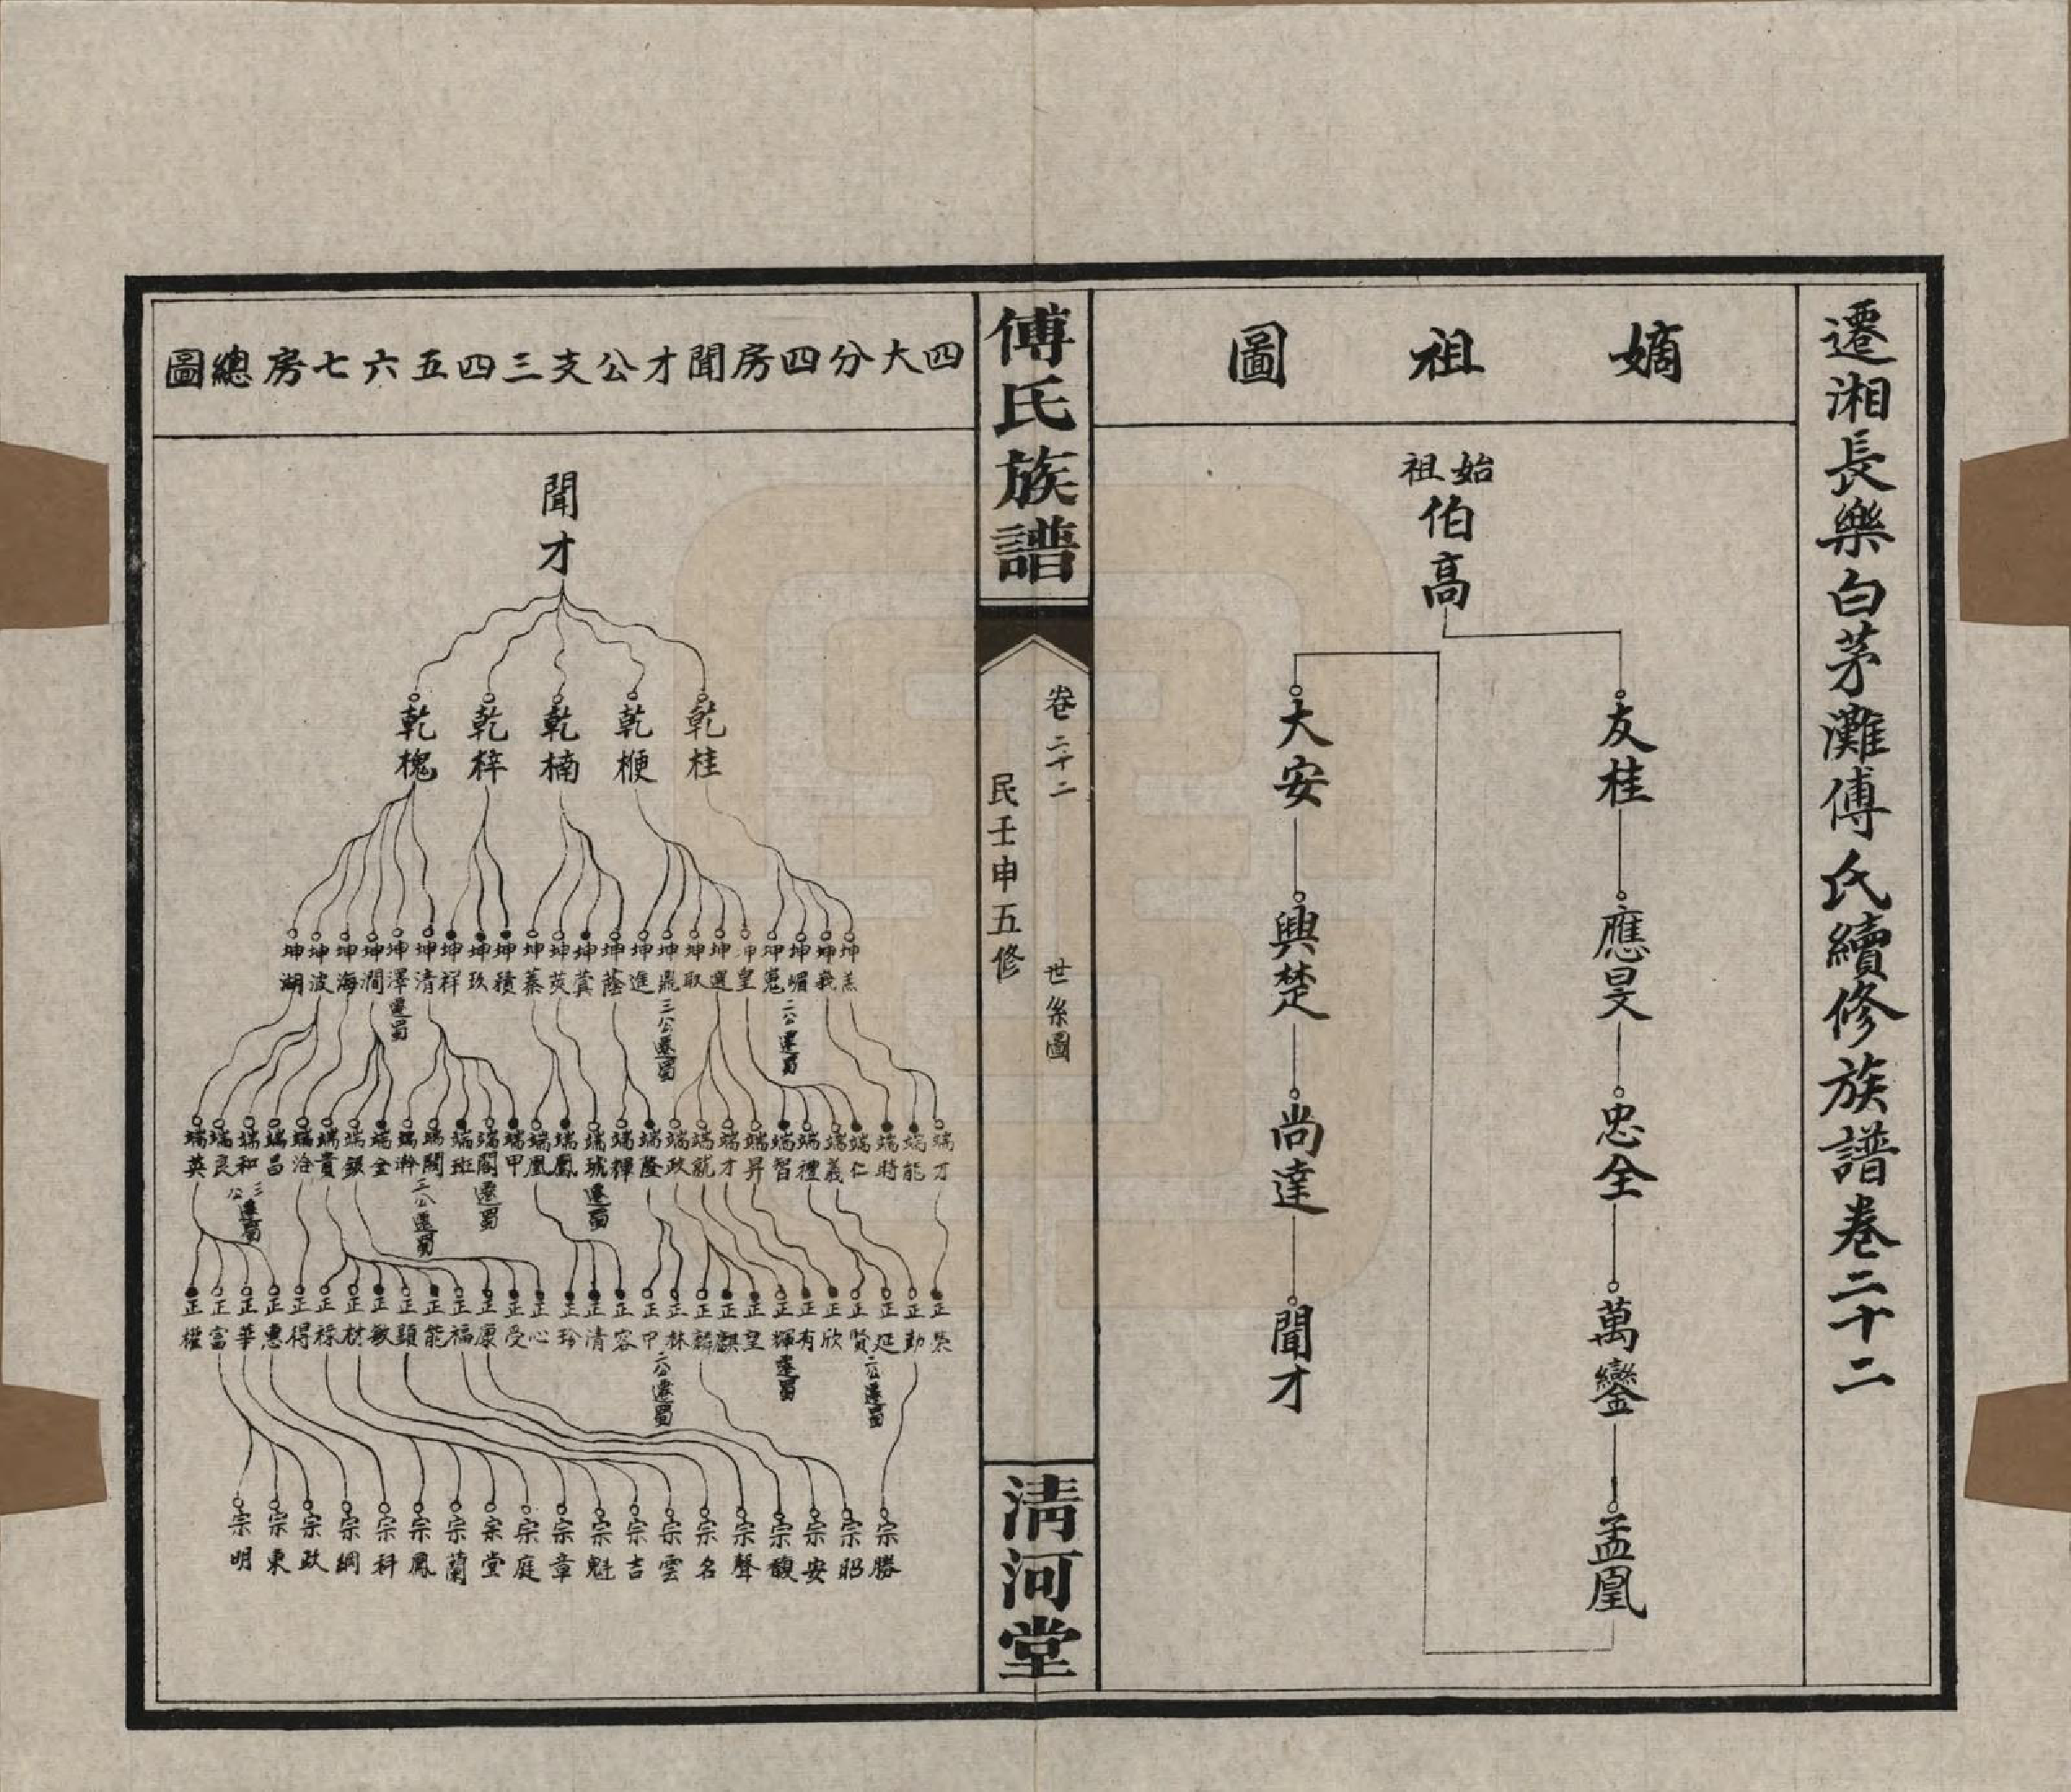 遷湘長樂白茅灘傅氏續修族譜卷二十二
嫡祖圖
始祖
伯高
友桂
應旻
忠全
萬鑾
孟凰
大安
興楚
尚達
聞才
傅氏族譜
卷二十二
世系圖
民壬申五修
清河堂
四大分四房聞才公支三四五六七房總圖
聞才
乾桂 乾楩 乾楠 乾梓 乾槐
坤羔 坤峩 坤嵋 坤嵬 坤皇 坤選 坤取 坤鼎 坤進 坤蔭 坤蓂 坤莢 坤蓁 坤積 坤玖 坤祥 坤清 坤澤 坤澗 坤海 坤波 坤湖
二公遷蜀 三公遷蜀 遷蜀
端才 端能 端時 端仁 端義 端禮 端智 端昇 端才 端就 端政 端隆 端輝 端琥 端鳳 端凰 端甲 端閣 端班 端閥 端瀚 端全 端銀 端貴 端治 端昌 端和 端良 端英
遷蜀 遷蜀 二公遷蜀 三公遷蜀
正榮 正勤 正延 正賢 正欣 正有 正輝 正皇 正麒 正麟 正林 正甲 正容 正清 正珍 正心 正受 正康 正福 正能 正顯 正敏 正材 正祿 正得 正惠 正華 正富 正權
二公遷蜀 遷蜀 二公遷蜀
宗勝 宗昭 宗安 宗馥 宗聲 宗名 宗雲 宗吉 宗魁 宗章 宗庭 宗堂 宗蘭 宗鳳 宗科 宗綱 宗政 宗東 宗明